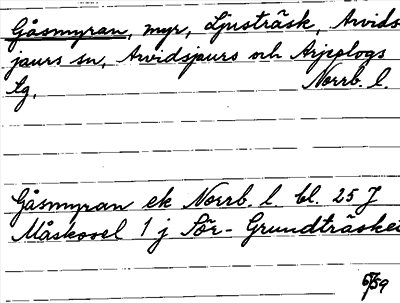 Gåsmyran, myr, Ljusträsk, Arvids-
jaurs sn, Arvidsjaurs och Arjeplogs
tg, Norrb. l.
Gåsmyran ek Norrb. l. bl. 25 J
Måskosel 1 j Sör-Grundträsket
6/59